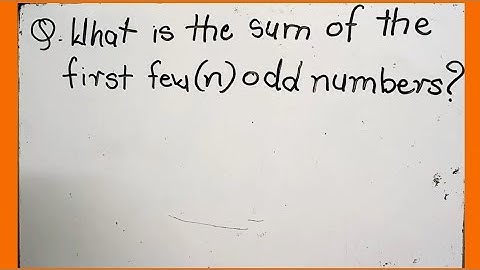 Q. What is the sum of the
first few(n) odd numbers?